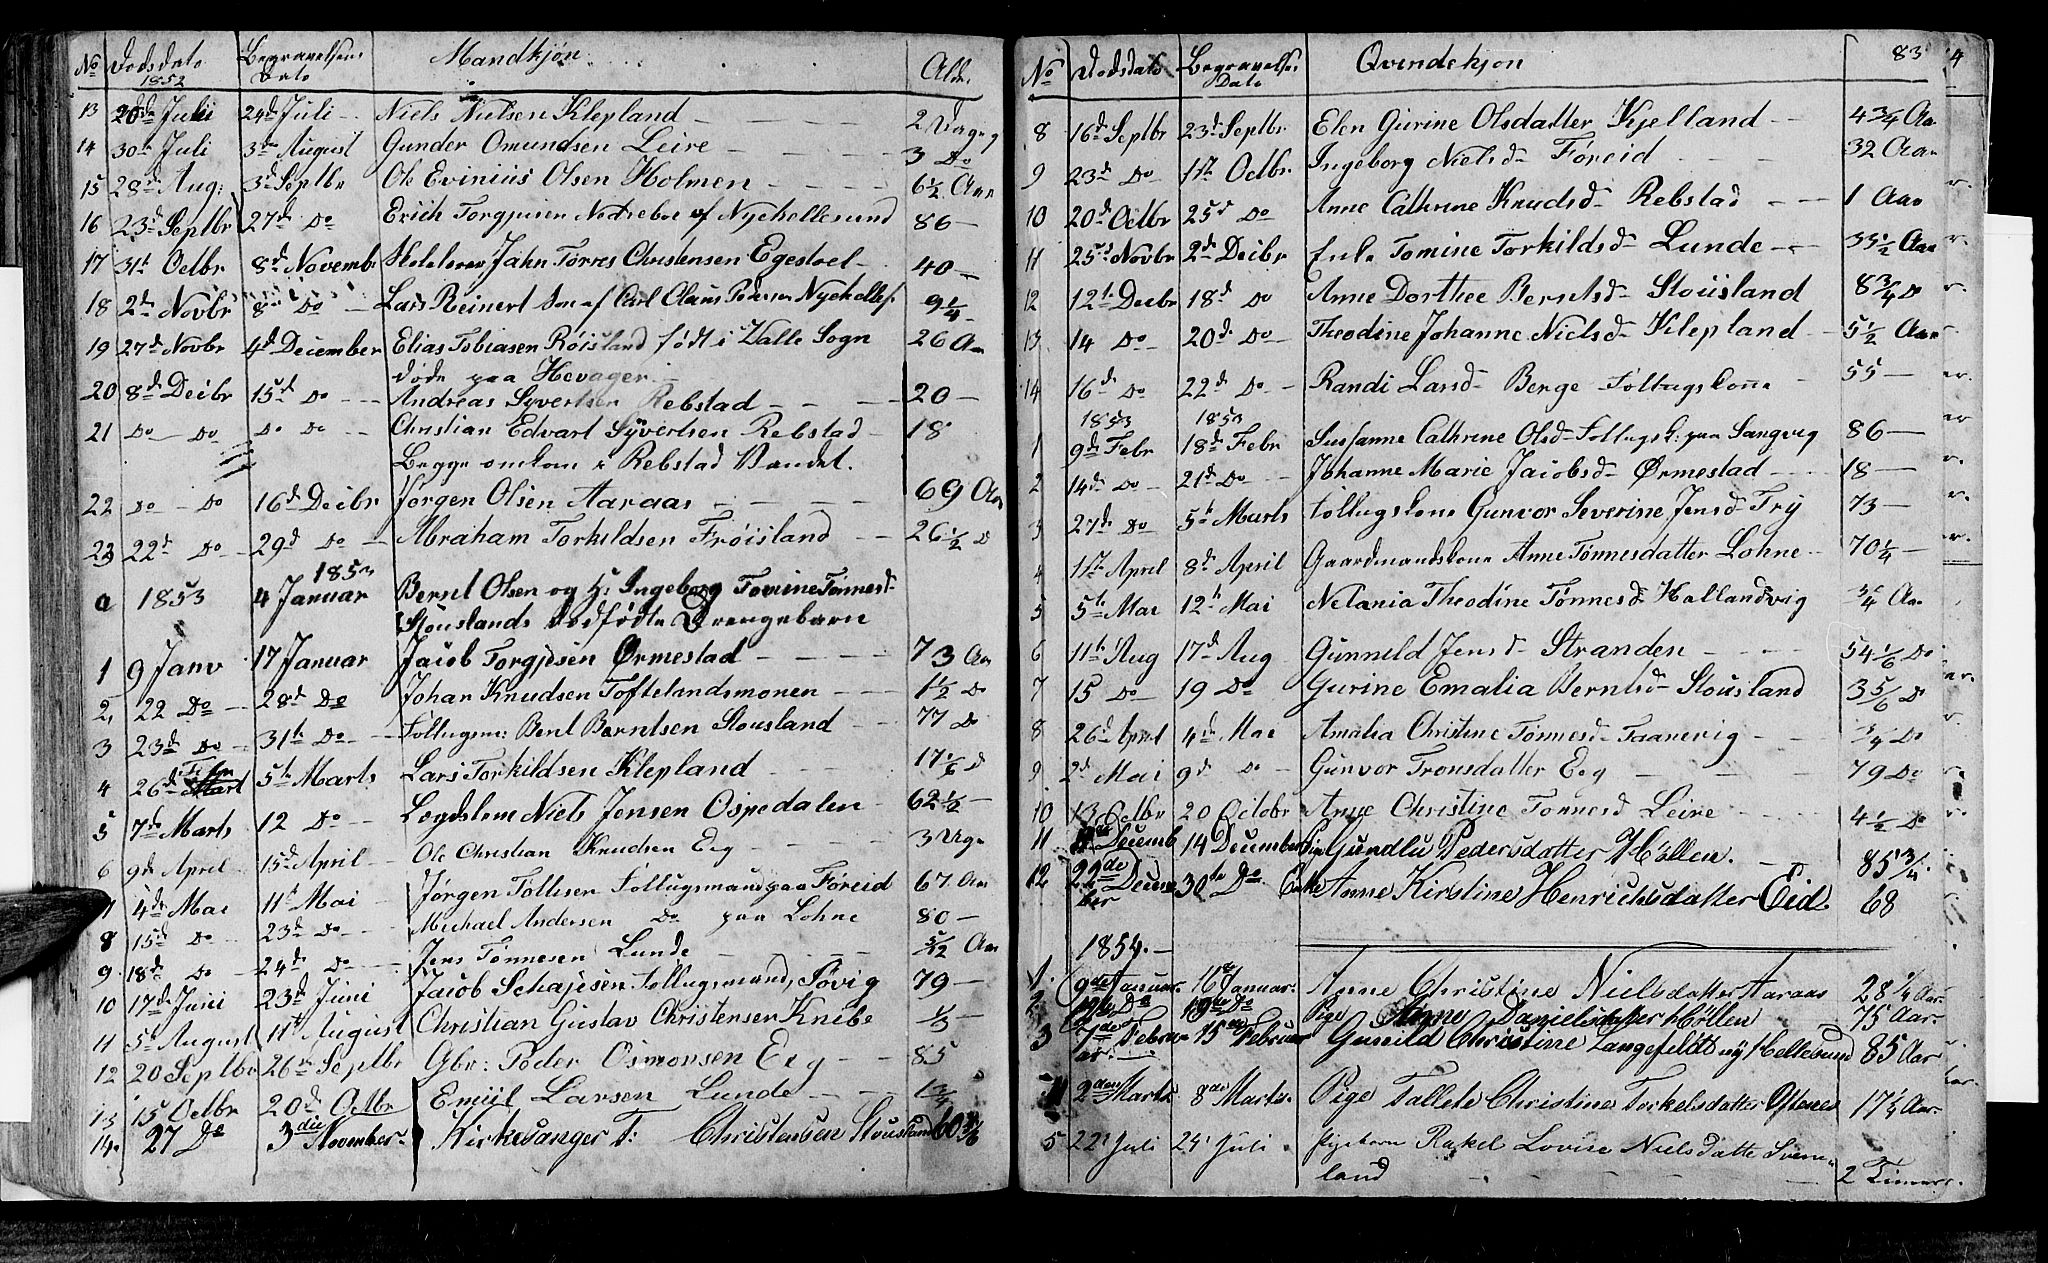 No Dødsdato Begravelses Mandkjøn Alder
1852 Dato
13 20de Juli 24d Juli Niels Nielsen Klepland 2 Dage g
14 30te Juli 3die August Gunder Omundsen Leire 3 Do
15 28d Aug: 3d Septbr Ole Evinius Olsen Holmen 6 1/2 Aar
16 23d Septbr 27d Do Erich Torgjusen Nodrebøe af Nychellesund 86 —
17 31t Octbr 8d Novembr Jahn Torres Christensen Egestoel 40 —
18 2d Novbr 8d Do Lars Reinert Søn af Carl Claus Pedersen Nychellesf 9 1/4
19 27d Novbr 4d December Elias Tobiasen Røisland født i Halle Sogn 26 Aar
døde paa Hevager
20 8d Decbr 15d Do Andreas Syvertsen Rebstad 20 —
21 Do Do Do Do Christian Edvart Syvertsen Rebstad 18
Begge omkom i Rebstad Vandet.
22 Do Do 16d Decbr Jørgen Olsen Aaraas 69 Aar
23 22d Do 29d Do Abraham Torkildsen Frøisland 26 1/2 D
1853
a 1853 4 Januar Bernt Olsen og H: Ingeborg Tomine Tønnesd
Stouslands dødfødte Drengebarn
1 9 Janv 17 Januar Jacob Torgjesen Ørmestad 73 Aar
2, 22 Do 28d Do Johan Knudsen Toftelandsmonen 1 1/2 Do
3 23d Do 31t Do Follugsm: Bent Berntsen Stousland 77 Do
4 26d Febr 5t Marts Lars Torkildsen Klepland 17 1/6 D
5 7d Marts 12 Do Lægdslem Niels Jensen Ospedalen 62 1/2 —
6 9d April 15d April Ole Christian Knudsen Eeg 3 Uge
4d Mai 11t Mai Jørgen Tollesen Follugsmand paa Føreid 67 Aar
8 15d Do 23d Do Michael Andersen Do paa Lohne 80 —
9 18d Do 24d Do Jens Tønnesen Lunde 5/12 Aar
10 17d Juni 23d Juni Jacob Schajesen Follugsmand, Søvig 79 —
11 5t August 11t August Christian Gustav Christensen Knibe 1/3 —
12 20 Septbr 26t Septbr Gbr: Peder Osmonsen Eeg 85
13 15 Octbr 20d Octbr Emiil Larsen Lunde 1 3/4
14. 27 Do 3die November Kirkesanger T: Christensen Stousland 60 3/6

No Dødsdato Begravelses Qvindekjøn 83 4
Dato
8 16d Septbr 23d Septbr Elen Gurine Olsdatter Kjelland 4 3/4 Aar
9 23d Do 1t Octbr Ingeborg Nielsd Føreid 32 Aar
10 20d Octbr 25d Do Anne Cathrine Knudsd Rebstad 1 Aar
11 25d Novbr 2d Decbr Enke Tomine Torkildsd Lunde 33 1/2 Aar
12 12t Decbr 18d Do Anne Dorthee Berntsd Stousland 8 3/4 D
13 14 Do 20d Do Theodine Johanne Nielsd Klepland 5 1/2 Aar
14 16d Do 22d Do Randi Larsd Berge Follugskone 55 —
1853 1853
1 9d Febr 18d Febr Susanne Cathrine Olsd Follugsk: paa Sangvig 86 —
2 14d Do 21d Do Johanne Marie Jacobsd Ørmestad 18 —
3 27d Do 5t Marts Follugskone Gunvor Severine Jensd Try 73 —
4 1t April 8d April Gaardmandskone Anne Tønnesdatter Lohne 70 1/4 —
5 5t Mai 12t Mai Nelania Theodine Tønnesd Hallandvig 3/4 Aar
6 11t Aug 17d Aug Gunneld Jensd Stranden 54 1/6 Do
7 15 Do 19 Do Gurine Emalia Berntsd Stousland 3 5/6 D
8 26d April 4d Mai Amalia Christine Tønnesd Taanevig 3/4 Do
9 2d Mai 9d Do Gunvor Tronsdatter Eeg 79 Do
10 13 Octbr 20 Octobr Anne Christine Tønnesd Leire 4 1/2 Do
11 Decemb 14 December Pige Gundlu Pedersdatter Høllen. 85 3/4.
12 22de Decem 30te Do Enke Anne Kirstine Henrichsdatter Eid. 68
ber
1854. —
1. 9de Januar. 16 Januar. Anne Christine Nielsdatter Aaraas 28 1/4 Aar.
2 Do 19de Do Pige Anne Danielsdatter Høllen 75 Aar.
3 7de Febru 15de Februar Guneild Christine Langefeldt ny Hellesund 85 Aar
ar.
2den Marts 8de Marts. Pige Tallete Christine Torkelsdatter Oftenes 17 1/4 Aar.
5 22' Juli 24' Juli. Pigebarn Rakel Lovise Nielsdatte Svene
land 2 Timer.